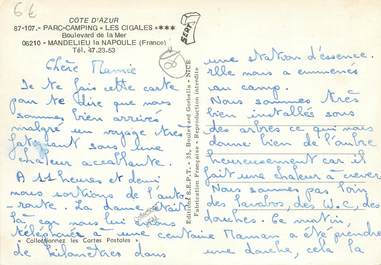 6€
CÔTE D'AZUR
87-107.- PARC-CAMPING « LES CIGALES » ***
Boulevard de la Mer
06210 - MANDELIEU la NAPOULE (France)
Tél. 47.23.53
SEPT
Chère Mamie
Je te fais cette carte
pour te dire que nous
sommes bien arrivés
malgré un voyage très
fatiguant sous une
chaleur accablante.
A 11 heures et demi
nous sortions de l'auto-
-route. La dame était
là car nous lui avions
téléphoné à une centaine
de kilomètres dans
« Collectionnez les Cartes Postales »
Editions S.E.P.T. - 33, Boulevard Gorbella - NICE
Fabrication Française - Reproduction interdite
une station d'essence.
elle nous a emmenés
au camp.
Nous sommes très
bien installés sous
des arbres ce qui nous
donne bien de l'ombre
heureusement car il
fait une chaleur à crever.
Nous sommes pas loin
des lavabos, des W.C, des
douches. Ce matin,
Maman a été prendre
une douche, cela la